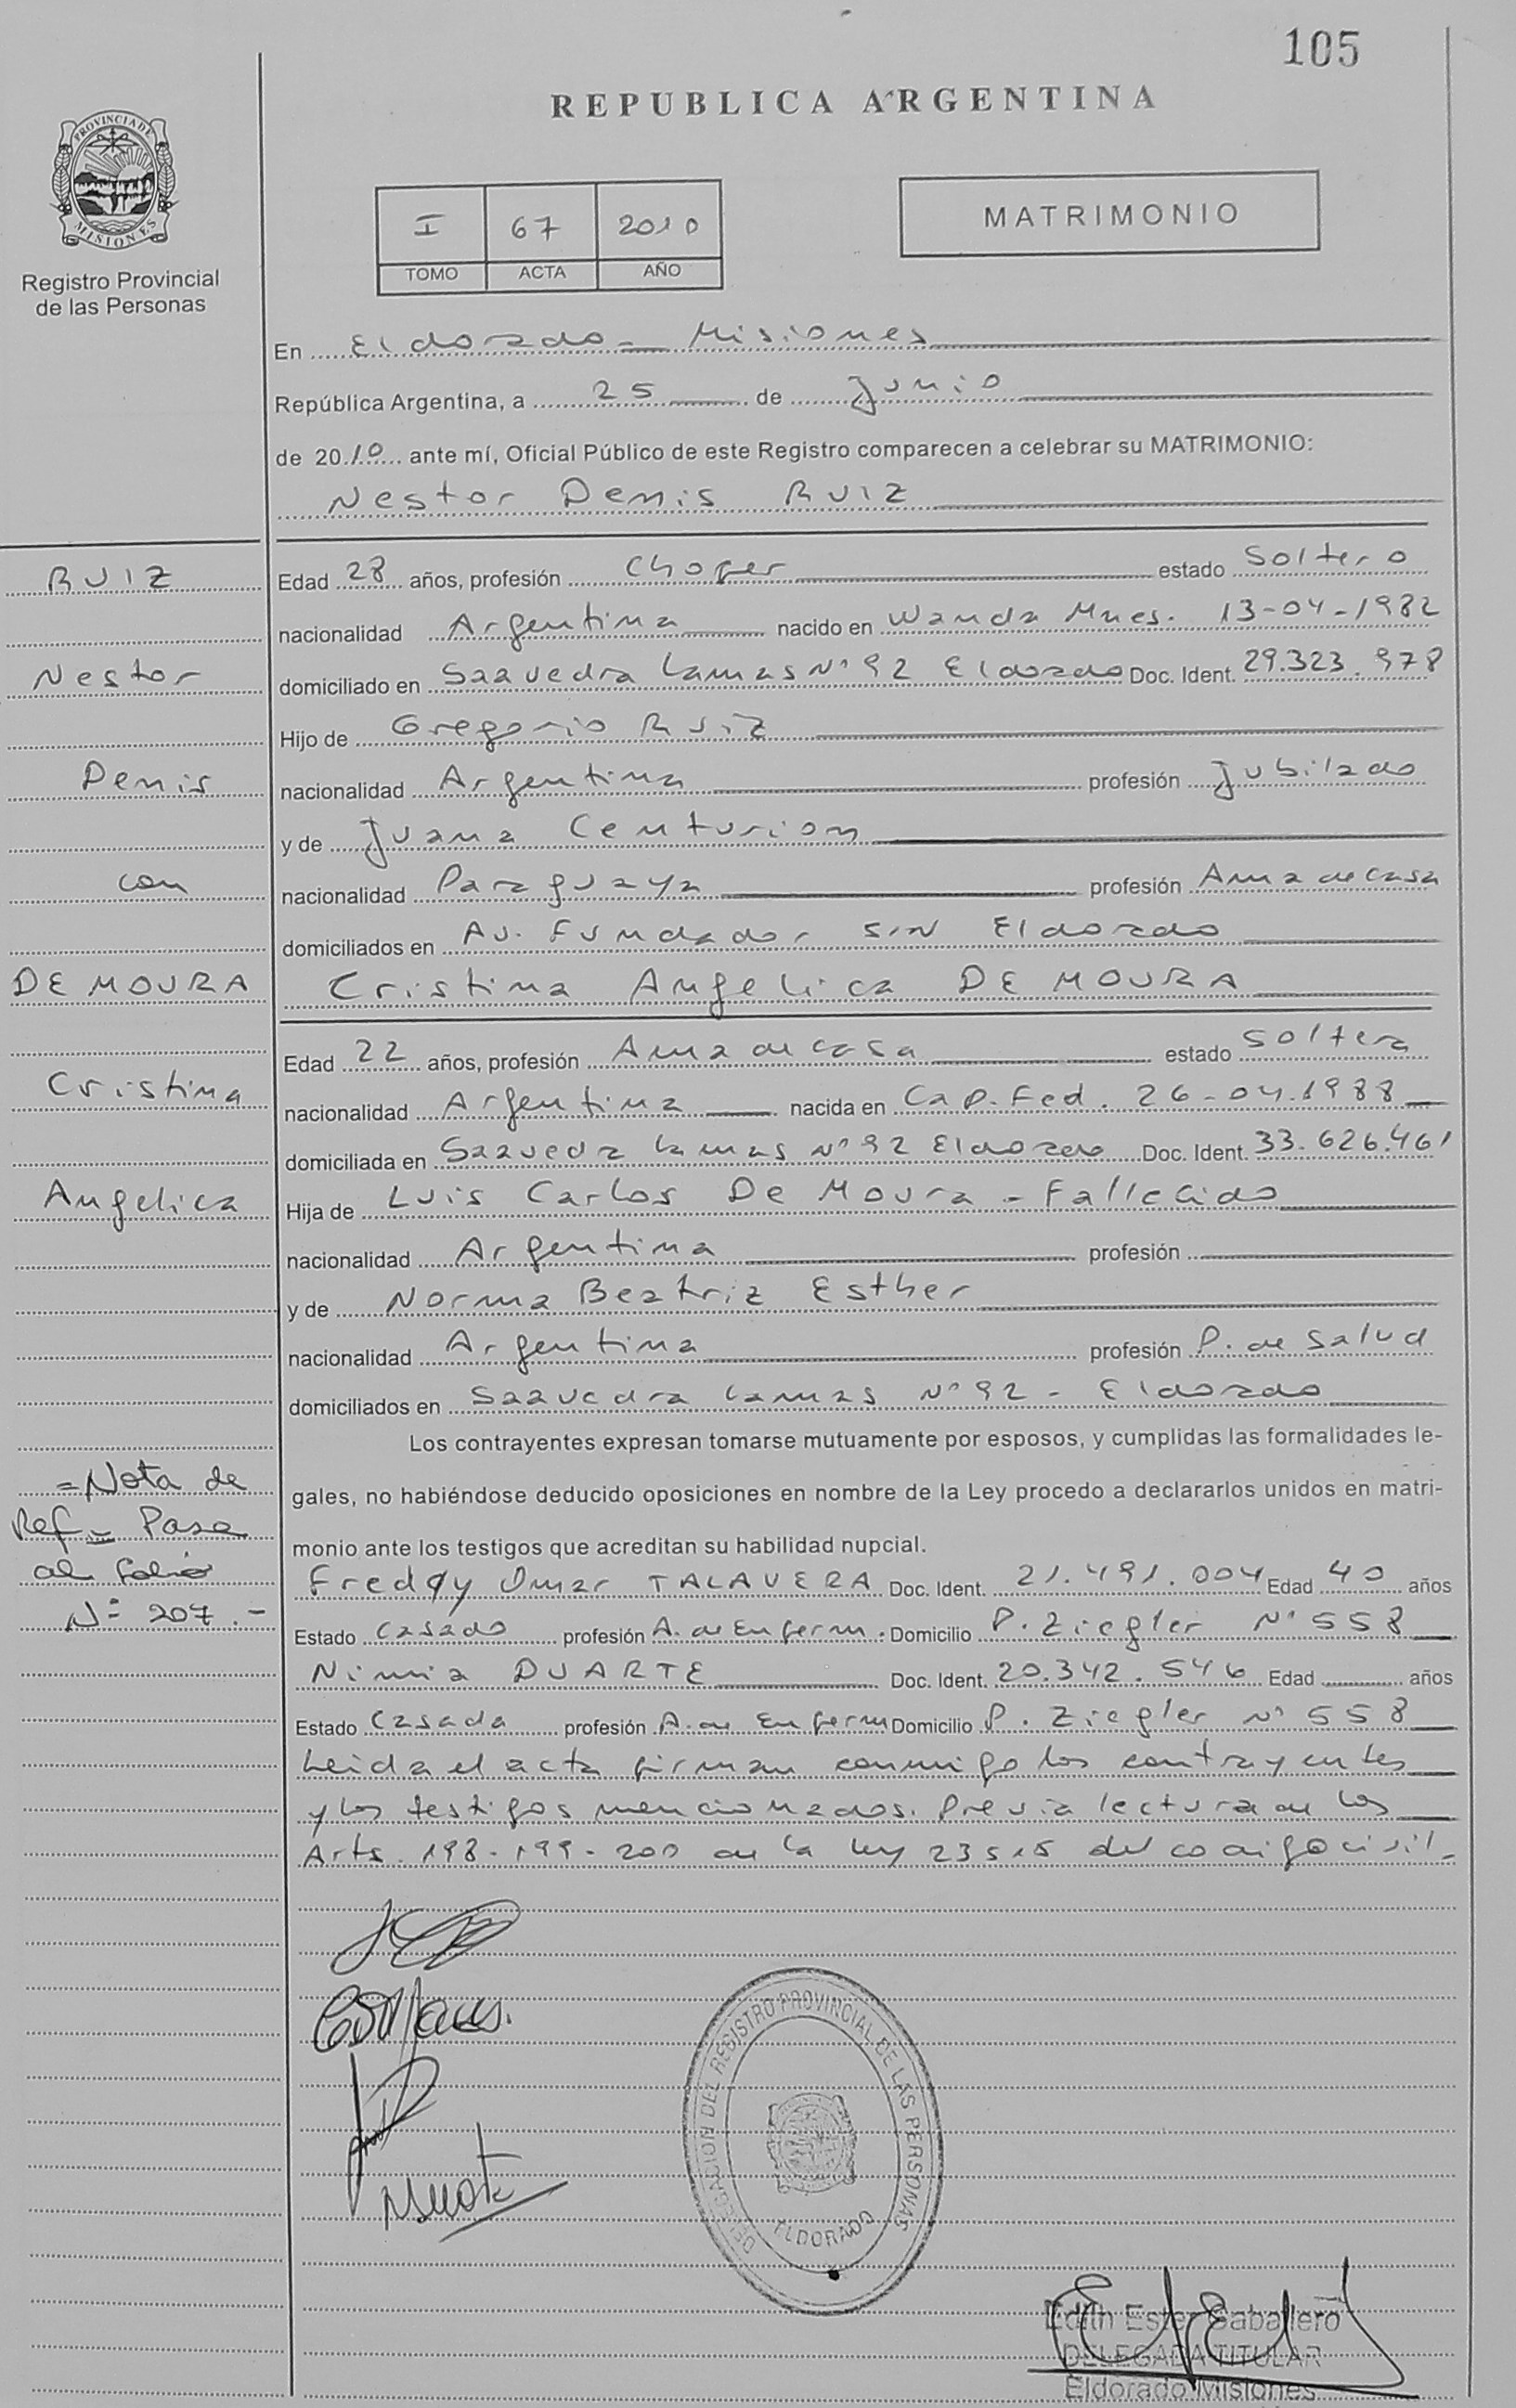 105
REPUBLICA ARGENTINA
PROVINCIA DE
MISIONES
Registro Provincial
de las Personas
I 67 2010
TOMO ACTA AÑO
MATRIMONIO
En Eldorado - Misiones
República Argentina, a 25 de Junio
de 2010 ante mí, Oficial Público de este Registro comparecen a celebrar su MATRIMONIO:
Nestor Denis RUIZ
RUIZ
Edad 28 años, profesión Chofer estado Soltero
nacionalidad Argentina nacido en Wanda Mnes. 13-04-1982
Nestor
domiciliado en Saavedra Lamas N° 92 Eldorado Doc. Ident. 29.323.978
Hijo de Gregorio Ruiz
Denis
nacionalidad Argentina profesión Jubilado
y de Juana Centurion
con
nacionalidad Paraguaya profesión Ama de casa
domiciliados en Av. Fundador S/N Eldorado
DE MOURA
Cristina Angelica DE MOURA
Edad 22 años, profesión Ama de casa estado Soltera
Cristina
nacionalidad Argentina nacida en Cap. Fed. 26-04-1988
domiciliada en Saavedra Lamas N° 92 Eldorado Doc. Ident. 33.626.461
Angelica
Hija de Luis Carlos De Moura - Fallecido
nacionalidad Argentina profesión
y de Norma Beatriz Esther
nacionalidad Argentina profesión P. de Salud
domiciliados en Saavedra Lamas N° 92 - Eldorado
Los contrayentes expresan tomarse mutuamente por esposos, y cumplidas las formalidades le-
gales, no habiéndose deducido oposiciones en nombre de la Ley procedo a declararlos unidos en matri-
monio ante los testigos que acreditan su habilidad nupcial.
= Nota de
Ref - Pase
al folio
N° 207.-
Freddy Omar TALAVERA Doc. Ident. 21.491.004 Edad 40 años
Estado Casado profesión A. de Enferm. Domicilio P. Ziegler N° 558
Nimia DUARTE Doc. Ident. 20.342.546 Edad años
Estado Casada profesión A. de Enferm Domicilio P. Ziegler N° 558
Leida el acta firman conmigo los contrayentes
y los testigos mencionados. Previa lectura de los
Arts. 198-199-200 de la Ley 23515 del codigo civil-
DELEGACION DEL REGISTRO PROVINCIAL DE LAS PERSONAS
ELDORADO
Edith Ester Caballero
DELEGADA TITULAR
Eldorado Misiones